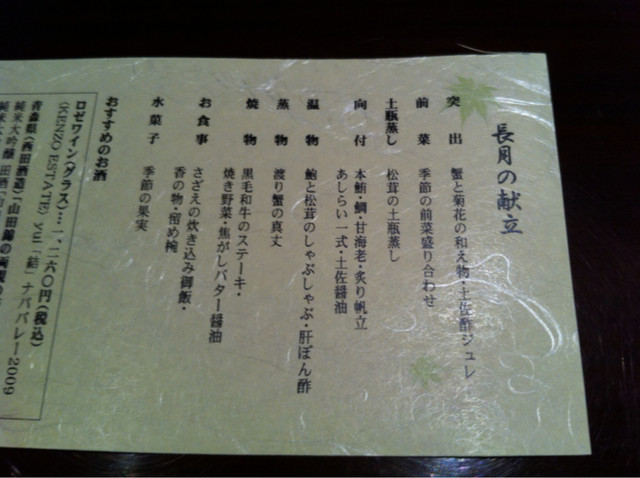 長月の献立
突出　蟹と菊花の和え物・土佐酢ジュレ
前菜　季節の前菜盛り合わせ
土瓶蒸し　松茸の土瓶蒸し
向付　本鮪・鯛・甘海老・炙り帆立
あしらい一式・土佐醤油
温物　鮑と松茸のしゃぶしゃぶ・肝ぽん酢
蒸物　渡り蟹の真丈
焼物　黒毛和牛のステーキ・
焼き野菜・焦がしバター醤油
お食事　さざえの炊き込み御飯・
香の物・留め椀
水菓子　季節の果実
おすすめのお酒
ロゼワイン(グラス)…一、二六〇円(税込)
〈KENZO ESTATE〉yui「結」ナパバレー2009
青森県〈西田酒造〉「山田錦の
純米大吟醸 田酒